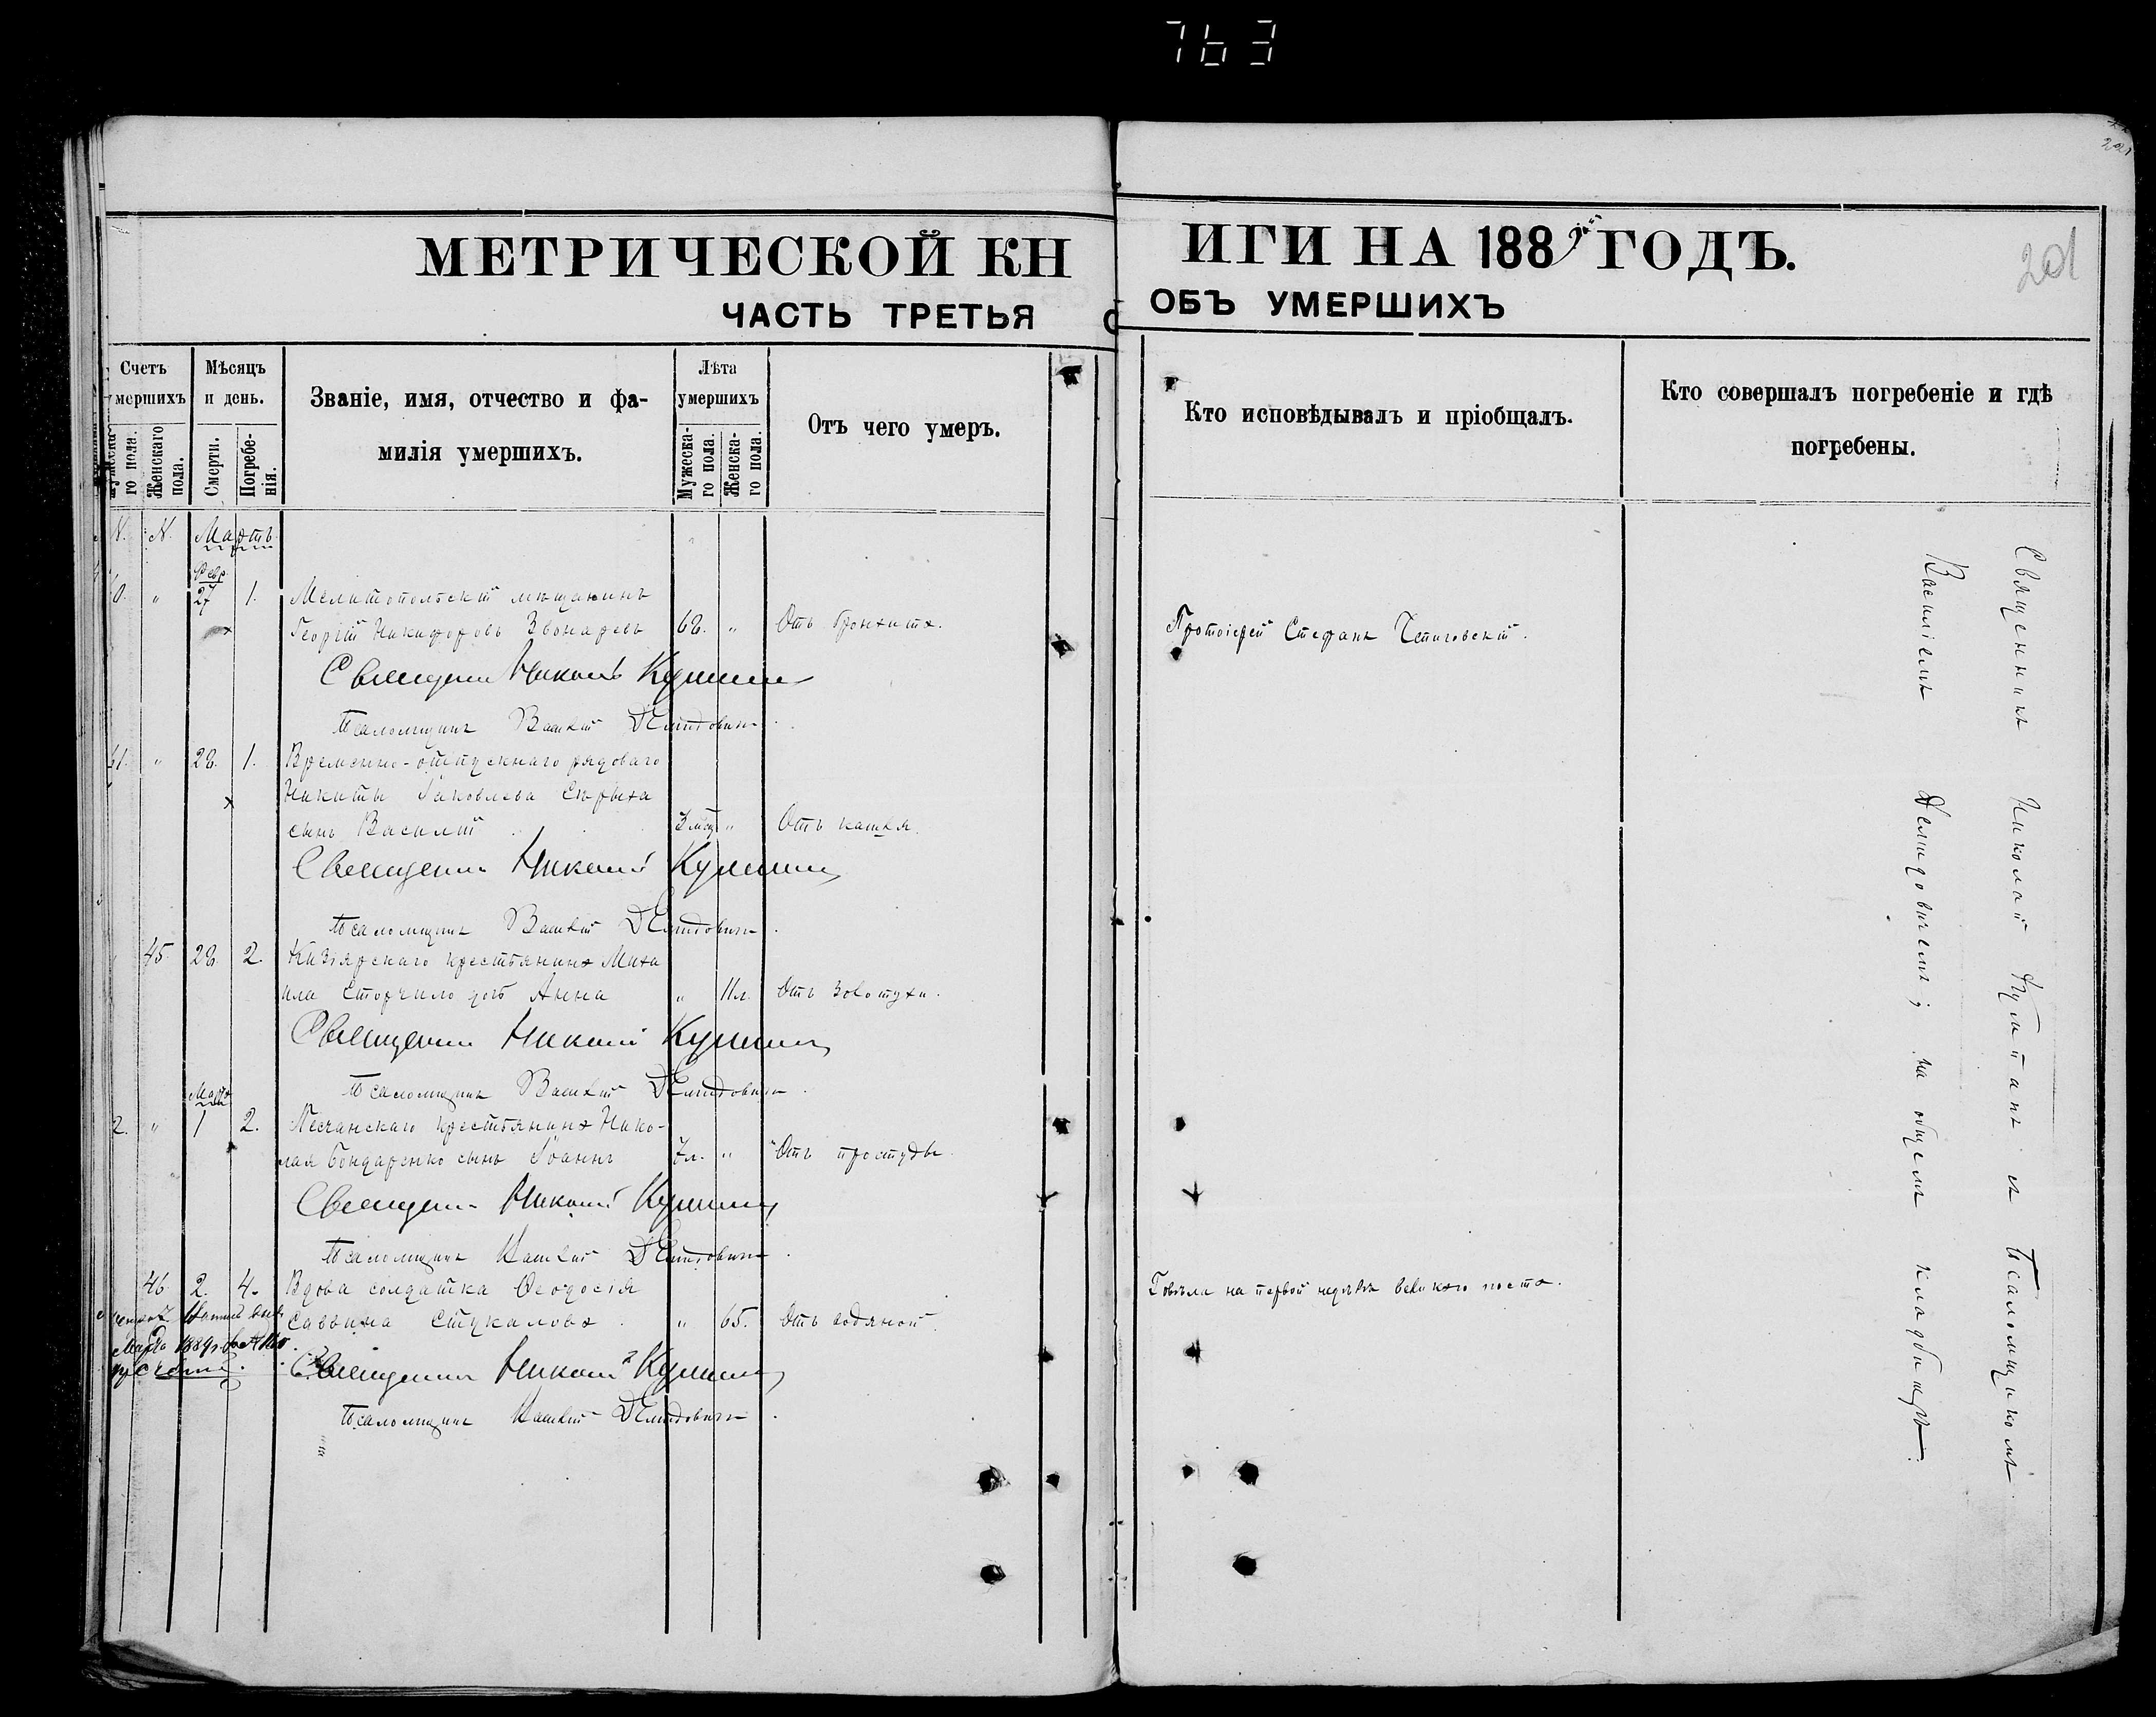 763
221
201
МЕТРИЧЕСКОЙ КНИГИ НА 1889й ГОДЪ.
ЧАСТЬ ТРЕТЬЯ ОБЪ УМЕРШИХЪ
Счетъ умершихъ
Мужеска-го пола.
Женскаго пола.
Мѣсяцъ и день.
Смерти.
Погребе-нія.
Званіе, имя, отчество и фа-
милія умершихъ.
Лѣта умершихъ
Мужеска-го пола.
Женска-го пола.
Отъ чего умеръ.
Кто исповѣдывалъ и пріобщалъ.
Кто совершалъ погребеніе и гдѣ
погребены.
N. N. Мартъ
Февр.
40. " 27 1. Мелитопольскій мѣщанинъ
Георгій Никифоровъ Звонаревъ 68. " Отъ бронхита. Протоіерей Стефанъ
Священникъ Николай
Псаломщикъ Василій Демидовичъ
41. " 28. 1. Временно-отпускнаго рядоваго
Никиты Іаковлева
сынъ Василій 3 мѣс " Отъ кашля.
Священникъ Николай
Псаломщикъ Василій Демидовичъ
" 45. 28 2. Кизіярскаго крестьянина Миха
ила Сторчило дочь Анна " 11л. Отъ золотухи.
Священникъ Николай
Псаломщикъ Василій Демидовичъ
Марта
2. " 1 2. Песчанскаго крестьянина Нико-
лая Бондаренко сынъ Іоаннъ 7л. " Отъ простуды.
Священникъ Николай
Псаломщикъ Василій Демидовичъ
46. 2. 4. Вдова солдатка Ѳеодосія Говѣла на первой недѣлѣ великаго поста.
Саввина Стукалова " 65. Отъ водяной
Марта 1889г.
Священникъ Николай
Псаломщикъ Василій Демидовичъ
Священникъ Николай и Псаломщикомъ
Василіемъ Демидовичемъ; на общемъ кладбищѣ.